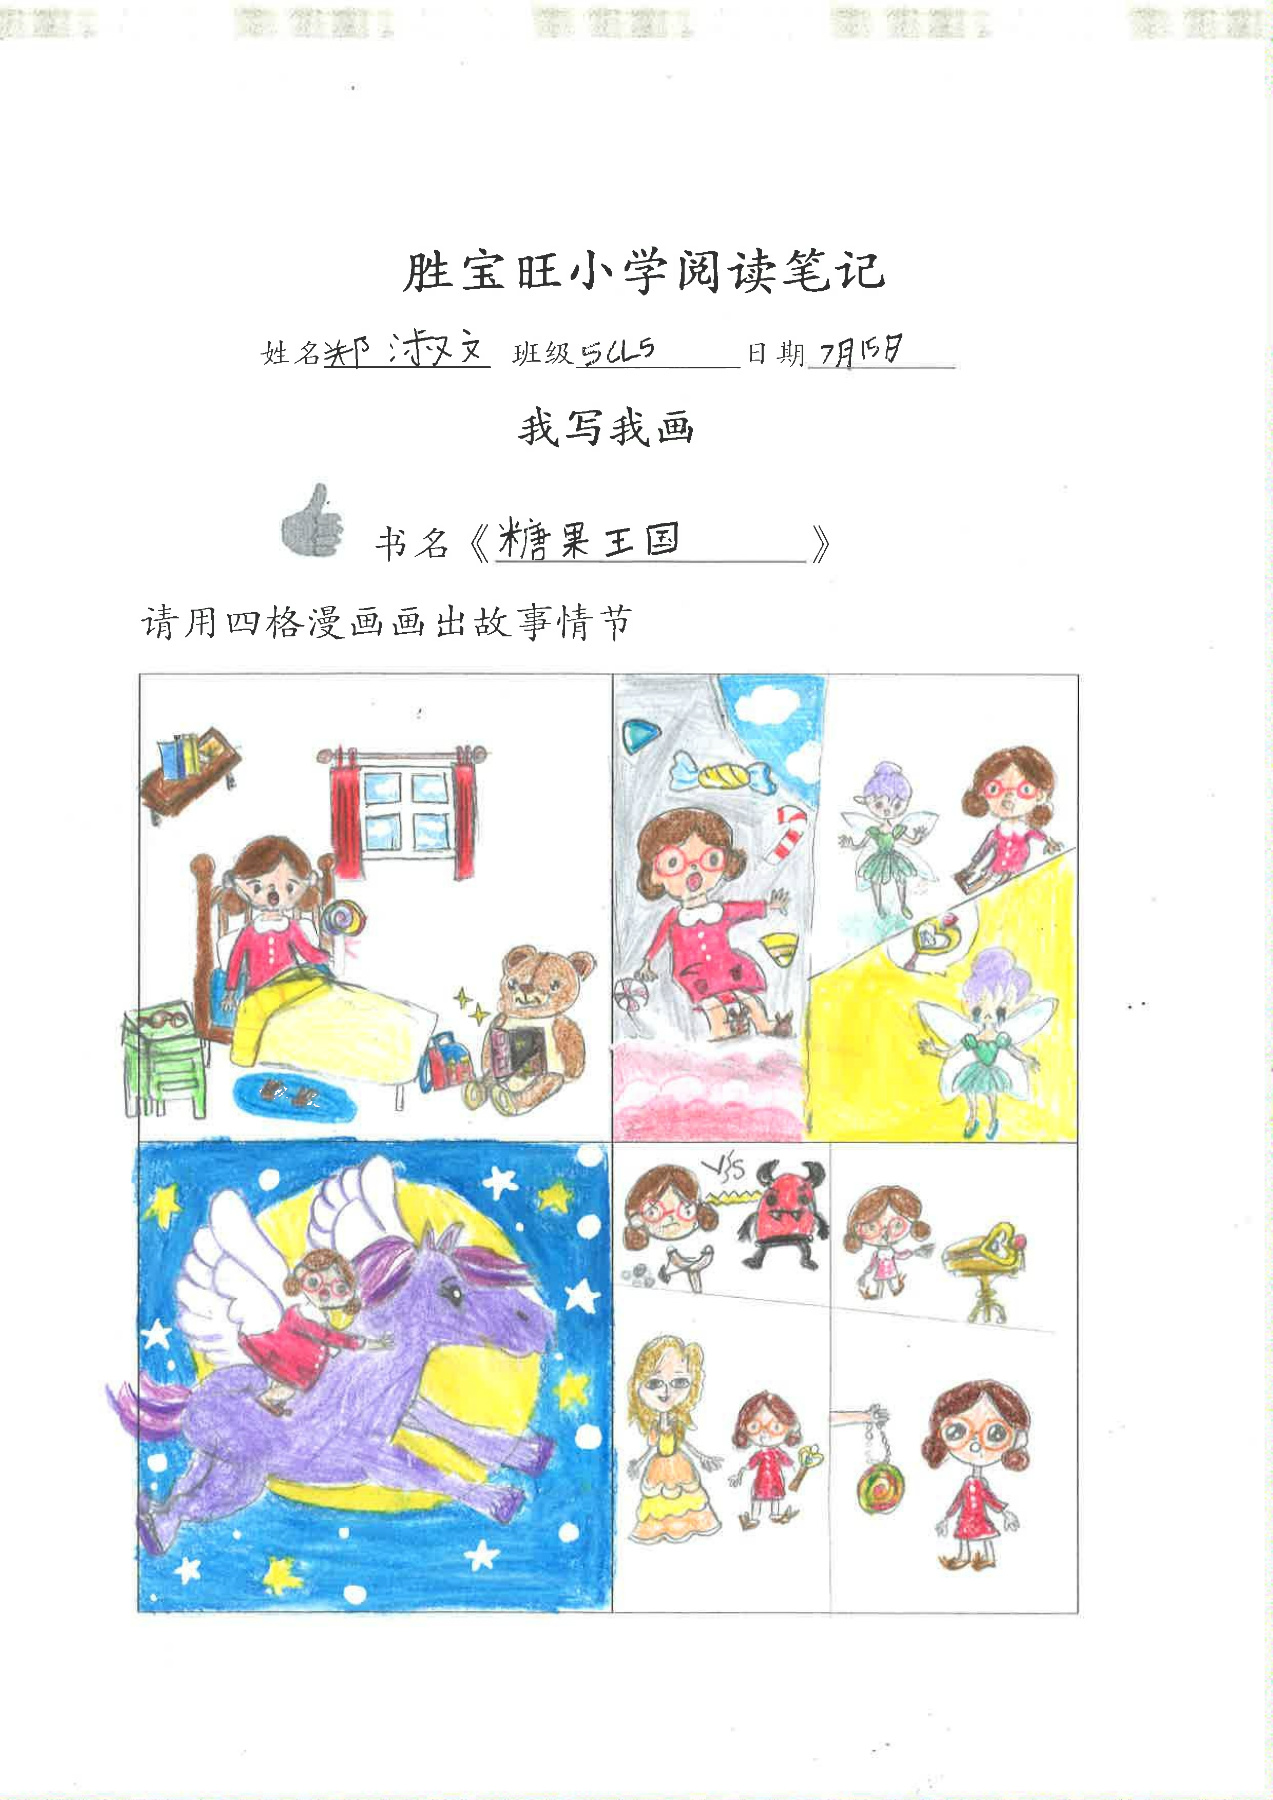 胜宝旺小学阅读笔记
姓名郑淑文 班级5CL5 日期7月15日
我写我画
书名《糖果王国》
请用四格漫画画出故事情节
VS